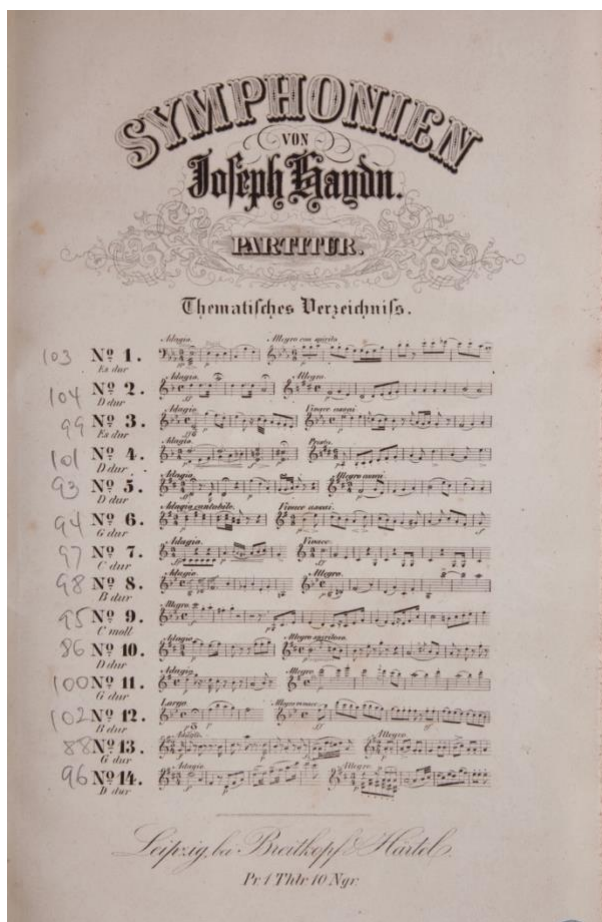 SYMPHONIEN
VON
Joseph Haydn.
PARTITUR.
Thematisches Verzeichniss.
Adagio. Allegro con spirito.
103 Nº 1.
Es dur
Adagio. Allegro.
104 Nº 2.
D dur
Adagio. Vivace assai.
99 Nº 3.
Es dur
Adagio. Presto.
101 Nº 4.
D dur
Adagio. Allegro assai.
93 Nº 5.
D dur
Adagio cantabile. Vivace assai.
94 Nº 6.
G dur
Adagio. Vivace.
97 Nº 7.
C dur
Adagio. Allegro.
98 Nº 8.
B dur
Allegro.
95 Nº 9.
C moll
Adagio. Allegro spiritoso.
86 Nº 10.
D dur
Adagio. Allegro.
100 Nº 11.
G dur
Largo. Allegro vivace.
102 Nº 12.
B dur
Adagio. Allegro.
88 Nº 13.
G dur
Adagio. Allegro.
96 Nº 14.
D dur
Leipzig, bei Breitkopf & Härtel.
Pr. 1 Thlr 10 Ngr.